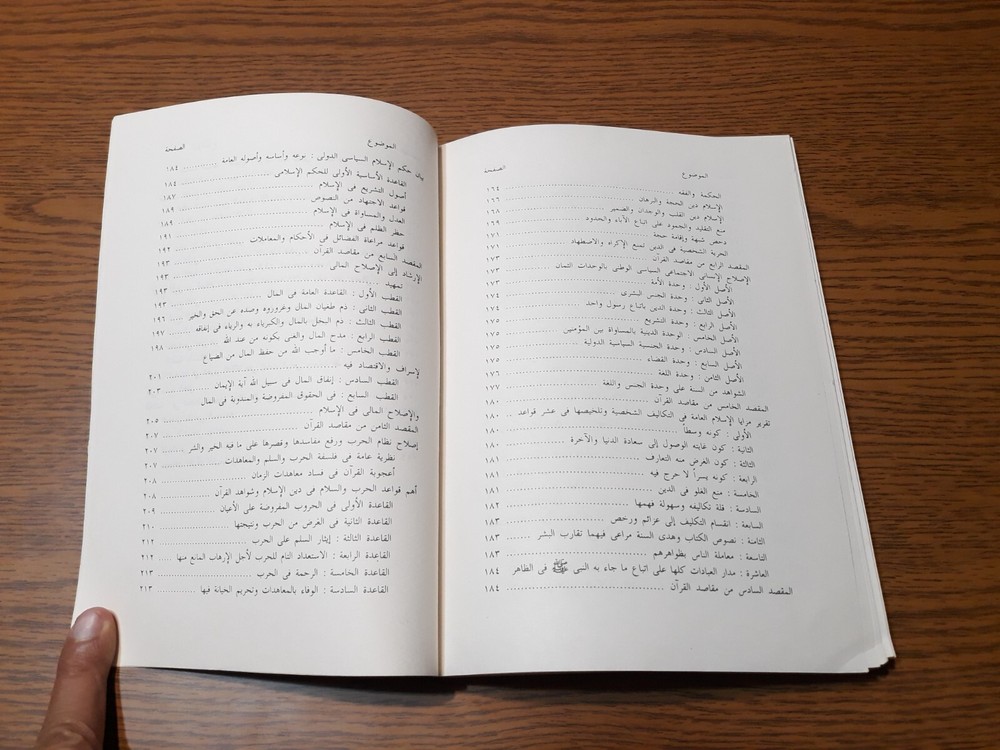 الموضوع الصفحة
الحكمة والفقه ١٦٤
الإسلام دين الحجة والبرهان ١٦٦
الإسلام دين القلب والوجدان والضمير ١٦٨
منع التقليد والجمود على اتباع الآباء والجدود ١٦٩
دحض شبهة وإقامة حجة ١٧١
الحرية الشخصية فى الدين تمنع الإكراه والاضطهاد ١٧١
المقصد الرابع من مقاصد القرآن ١٧٣
الإصلاح الإنسانى الاجتماعى السياسى الوطنى بالوحدات الثمان ١٧٣
الأصل الأول : وحدة الأمة ١٧٣
الأصل الثانى : وحدة الجنس البشرى ١٧٤
الأصل الثالث : وحدة الدين باتباع رسول واحد
الأصل الرابع : وحدة التشريع ١٧٥
الأصل الخامس : الوحدة الدينية بالمساواة بين المؤمنين ١٧٥
الأصل السادس : وحدة الجنسية السياسية الدولية ١٧٥
الأصل السابع : وحدة القضاء ١٧٥
الأصل الثامن : وحدة اللغة ١٧٦
الشواهد من السنة على وحدة الجنس واللغة ١٧٧
المقصد الخامس من مقاصد القرآن ١٨٠
تقرير مزايا الإسلام العامة فى التكاليف الشخصية وتلخيصها فى عشر قواعد ١٨٠
الأولى : كونه وسطاً ١٨٠
الثانية : كون غايته الوصول إلى سعادة الدنيا والآخرة ١٨٠
الثالثة : كون الغرض منه التعارف ١٨١
الرابعة : كونه يسراً لا حرج فيه ١٨١
الخامسة : منع الغلو فى الدين ١٨١
السادسة : قلة تكاليفه وسهولة فهمها ١٨٢
السابعة : انقسام التكليف إلى عزائم ورخص ١٨٣
الثامنة : نصوص الكتاب وهدى السنة مراعى فيهما تقارب البشر ١٨٣
التاسعة : معاملة الناس بظواهرهم ١٨٣
العاشرة : مدار العبادات كلها على اتباع ما جاء به النبى ﷺ فى الظاهر ١٨٤
المقصد السادس من مقاصد القرآن ١٨٤
الموضوع الصفحة
بيان حكم الإسلام السياسى الدولى : نوعه وأساسه وأصوله العامة ١٨٤
القاعدة الأساسية الأولى للحكم الإسلامى ١٨٤
أصول التشريع فى الإسلام ١٨٧
قواعد الاجتهاد من النصوص ١٨٩
العدل والمساواة فى الإسلام ١٨٩
حظر الظلم فى الإسلام ١٩١
قواعد مراعاة الفضائل فى الأحكام والمعاملات ١٩٢
المقصد السابع من مقاصد القرآن ١٩٣
الإرشاد إلى الإصلاح المالى ١٩٣
تمهيد ١٩٣
القطب الأول : القاعدة العامة فى المال ١٩٣
القطب الثانى : ذم طغيان المال وغروره وصده عن الحق والخير ١٩٦
القطب الثالث : ذم البخل بالمال والكبرياء به والرياء فى إنفاقه ١٩٧
القطب الرابع : مدح المال والغنى بكونه من عند الله ١٩٨
القطب الخامس : ما أوجب الله من حفظ المال من الضياع
لإسراف والاقتصاد فيه ٢٠١
القطب السادس : إنفاق المال فى سبيل الله آية الإيمان ٢٠٣
القطب السابع : فى الحقوق المفروضة والمندوبة فى المال
والإصلاح المالى فى الإسلام ٢٠٥
المقصد الثامن من مقاصد القرآن ٢٠٧
إصلاح نظام الحرب ورفع مفاسدها وقصرها على ما فيه الخير والشر ٢٠٧
نظرية عامة فى فلسفة الحرب والسلم والمعاهدات ٢٠٧
أعجوبة القرآن فى فساد معاهدات الزمان ٢٠٨
أهم قواعد الحرب والسلام فى دين الإسلام وشواهد القرآن ٢٠٨
القاعدة الأولى فى الحروب المفروضة على الأعيان ٢٠٩
القاعدة الثانية فى الغرض من الحرب ونتيجتها ٢١٠
القاعدة الثالثة : إيثار السلم على الحرب ٢١٢
القاعدة الرابعة : الاستعداد التام للحرب لأجل الإرهاب المانع منها ٢١٢
القاعدة الخامسة : الرحمة فى الحرب ٢١٣
القاعدة السادسة : الوفاء بالمعاهدات وتحريم الخيانة فيها ٢١٣